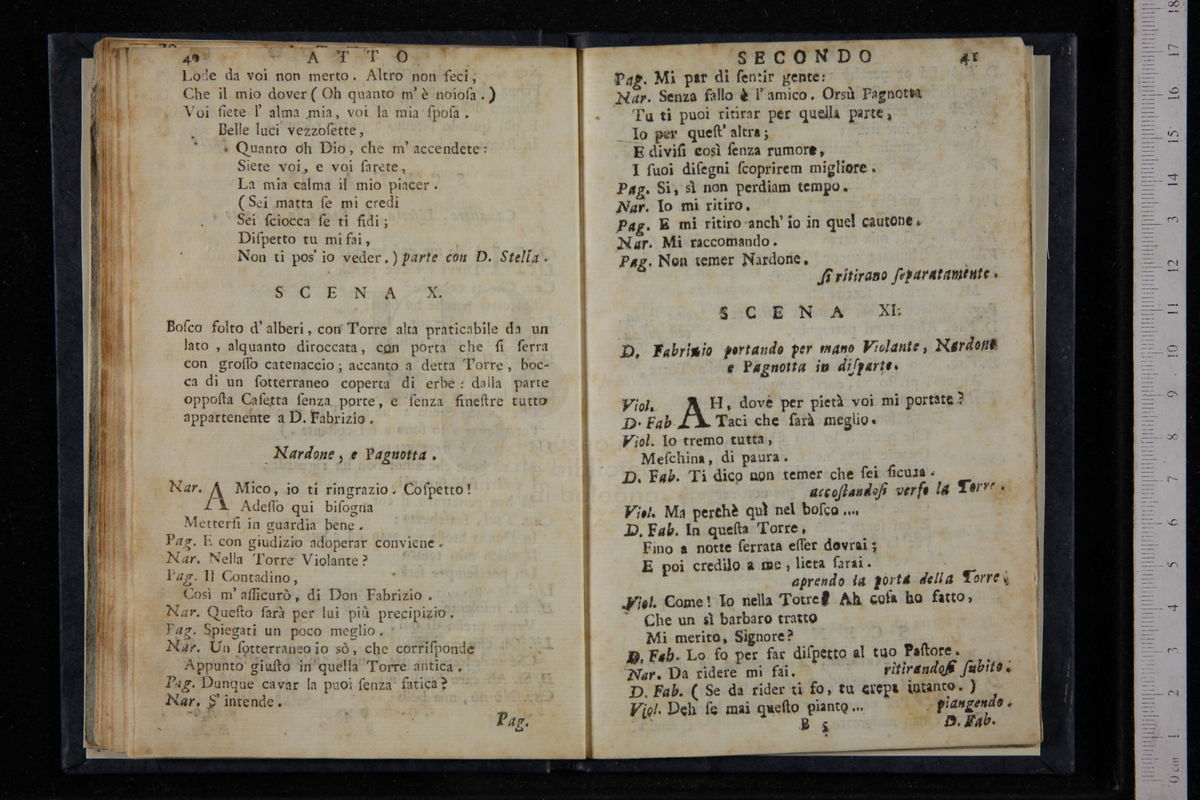 40 A T T O
Lode da voi non merto. Altro non feci,
Che il mio dover ( Oh quanto m' è noiosa. )
Voi siete l' alma mia, voi la mia sposa.
Belle luci vezzosette,
Quanto oh Dio, che m' accendete:
Siete voi, e voi sarete,
La mia calma il mio piacer.
(Sei matta se mi credi
Sei sciocca se ti fidi;
Dispetto tu mi fai,
Non ti pos' io veder. ) parte con D. Stella.
S C E N A X.
Bosco folto d' alberi, con Torre alta praticabile da un
lato, alquanto diroccata, con porta che si serra
con grosso catenaccio; accanto a detta Torre, boc-
ca di un sotterraneo coperta di erbe: dalla parte
opposta Casetta senza porte, e senza finestre tutto
appartenente a D. Fabrizio.
Nardone, e Pagnotta.
Nar. AMico, io ti ringrazio. Cospetto!
Adesso qui bisogna
Mettersi in guardia bene.
Pag. E con giudizio adoperar conviene.
Nar. Nella Torre Violante?
Pag. Il Contadino,
Così m' assicurò, di Don Fabrizio.
Nar. Questo sarà per lui più precipizio.
Pag. Spiegati un poco meglio.
Nar. Un sotterraneo io sò, che corrisponde
Appunto giusto in quella Torre antica.
Pag. Dunque cavar la puoi senza fatica?
Nar. S' intende.
Pag.
S E C O N D O 41
Pag. Mi par di sentir gente:
Nar. Senza fallo è l' amico. Orsù Pagnotta
Tu ti puoi ritirar per quella parte,
Io per quest' altra;
E divisi così senza rumore,
I suoi disegni scoprirem migliore.
Pag. Si, sì non perdiam tempo.
Nar. Io mi ritiro.
Pag. E mi ritiro anch' io in quel cautone.
Nar. Mi raccomando.
Pag. Non temer Nardone.
si ritirano separatamente.
S C E N A XI.
D. Fabrizio portando per mano Violante, Nardone
e Pagnotta in disparte.
Viol. AH, dove per pietà voi mi portate?
D. Fab. Taci che sarà meglio.
Viol. Io tremo tutta,
Meschina, di paura.
D. Fab. Ti dico non temer che sei sicura.
accostandosi verso la Torre.
Viol. Ma perchè quì nel bosco....
D. Fab. In questa Torre,
Fino a notte serrata esser dovrai;
E poi credilo a me, lieta sarai.
aprendo la porta della Torre;
Viol. Come! Io nella Totre? Ah cosa ho fatto,
Che un sì barbaro tratto
Mi merito, Signore?
D. Fab. Lo fo per far dispetto al tuo Pastore.
Nar. Da ridere mi fai. ritirandosi subito.
D. Fab. ( Se da rider ti fo, tu crepa intanto. )
Viol. Deh se mai questo pianto... piangendo.
B 5 D. Fab.